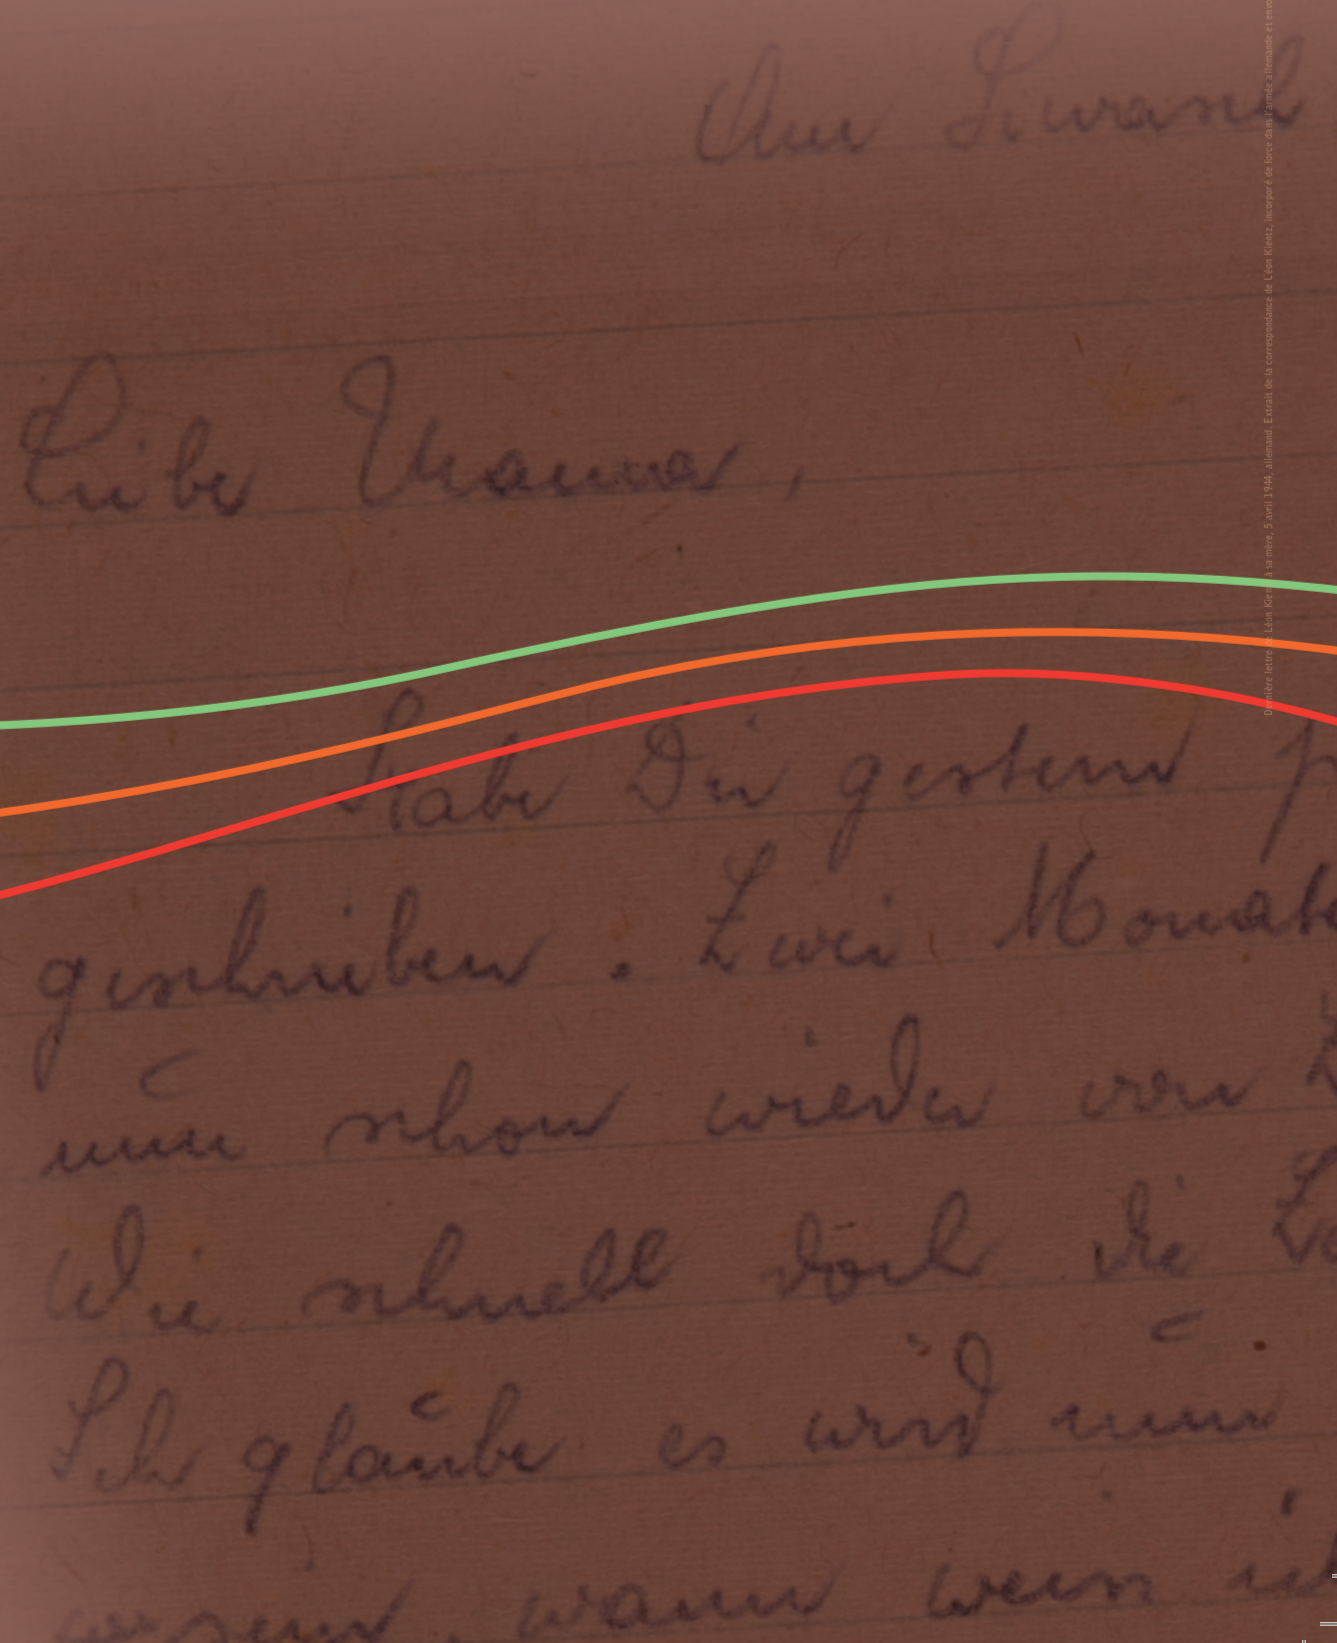 Am Siwasch
Liebe Mama,
Habe Dir gestern
geschrieben. Zwei Monate
nun schon wieder von
Wie schnell doch die
Ich glaube es wird nun
wann wenn
Dernière lettre de Léon Kientz à sa mère, 5 avril 1944, allemand. Extrait de la correspondance de Léon Kientz, incorporé de force dans l'armée allemande et envo